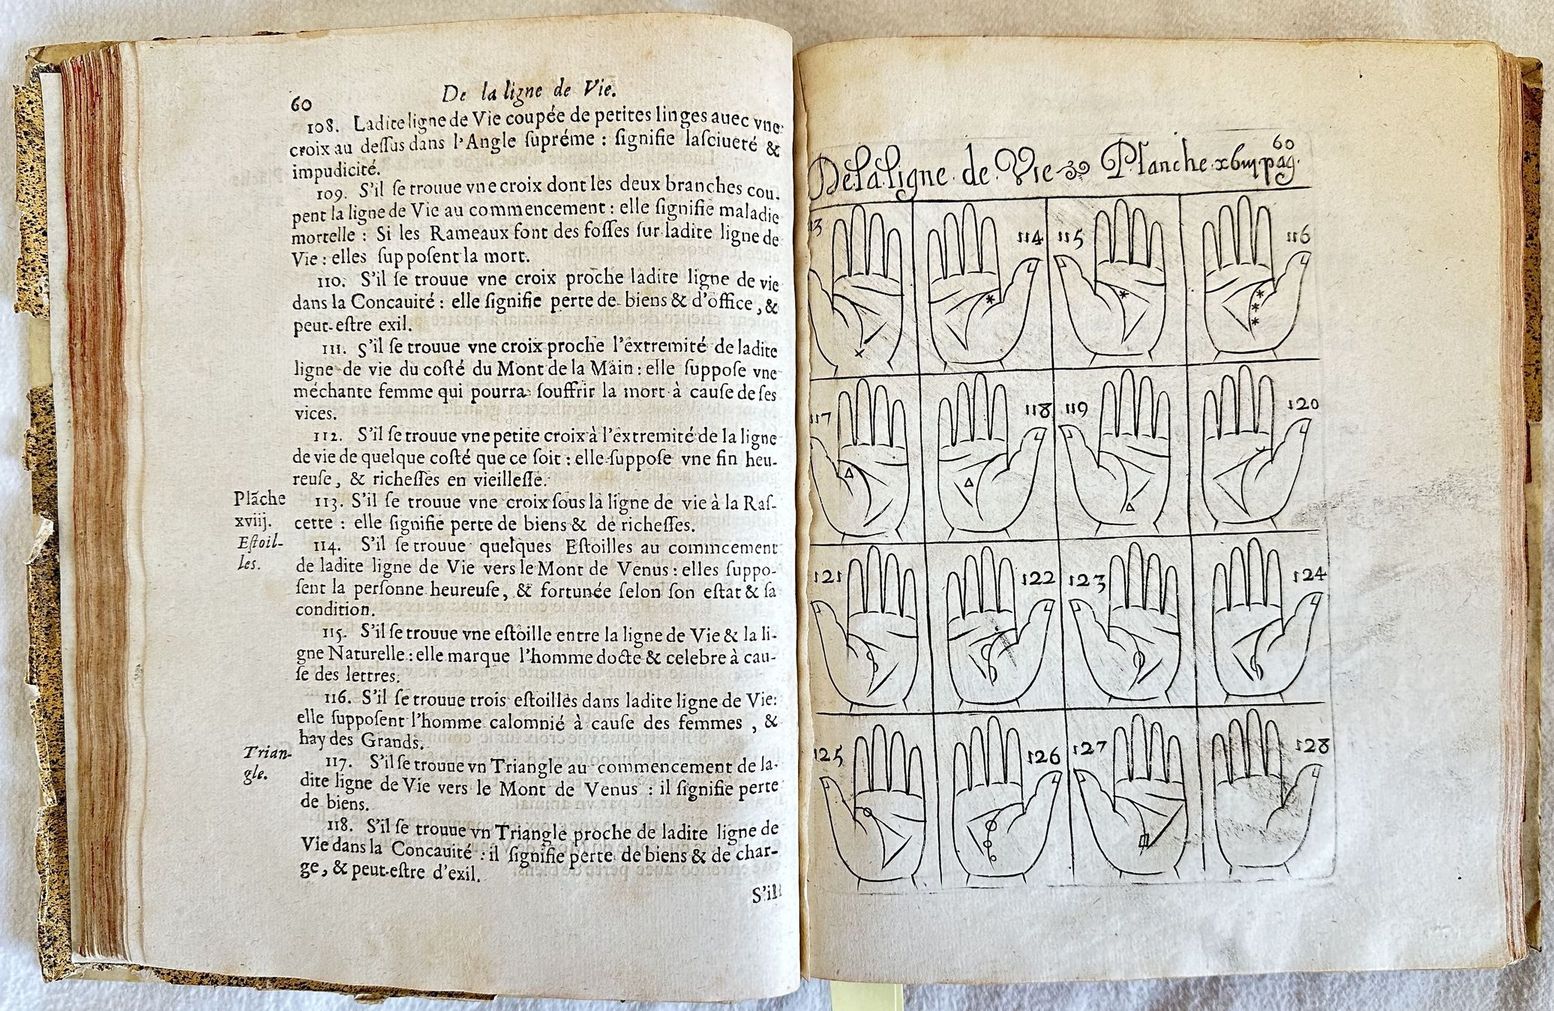 60
De la ligne de Vie.
108. Ladite ligne de Vie coupée de petites linges auec vne
croix au dessus dans l'Angle supréme : signifie lasciueté &
impudicité.
109. S'il se trouue vne croix dont les deux branches cou-
pent la ligne de Vie au commencement : elle signifie maladie
mortelle : Si les Rameaux font des fosses sur ladite ligne de
Vie : elles supposent la mort.
110. S'il se trouue vne croix proche ladite ligne de vie
dans la Concauité : elle signifie perte de biens & d'office, &
peut-estre exil.
111. S'il se trouue vne croix proche l'extremité de ladite
ligne de vie du costé du Mont de la Main : elle suppose vne
méchante femme qui pourra souffrir la mort à cause de ses
vices.
112. S'il se trouue vne petite croix à l'extremité de la ligne
de vie de quelque costé que ce soit : elle suppose vne fin heu-
reuse, & richesses en vieillesse.
Plāche
xviij.
113. S'il se trouue vne croix sous la ligne de vie à la Ras-
cette : elle signifie perte de biens & de richesses.
Estoil-
les.
114. S'il se trouue quelques Estoilles au commcement
de ladite ligne de Vie vers le Mont de Venus : elles suppo-
sent la personne heureuse, & fortunée selon son estat & sa
condition.
115. S'il se trouue vne estoille entre la ligne de Vie & la li-
gne Naturelle : elle marque l'homme docte & celebre à cau-
se des lettres.
116. S'il se trouue trois estoilles dans ladite ligne de Vie:
elle supposent l'homme calomnié à cause des femmes, &
hay des Grands.
Trian-
gle.
117. S'il se trouue vn Triangle au commencement de la-
dite ligne de Vie vers le Mont de Venus : il signifie perte
de biens.
118. S'il se trouue vn Triangle proche de ladite ligne de
Vie dans la Concauité : il signifie perte de biens & de char-
ge, & peut-estre d'exil.
S'il
60
De la ligne de Vie Planche xbiij pag.
13 114 115 116
117 118 119 120
121 122 123 124
125 126 127 128